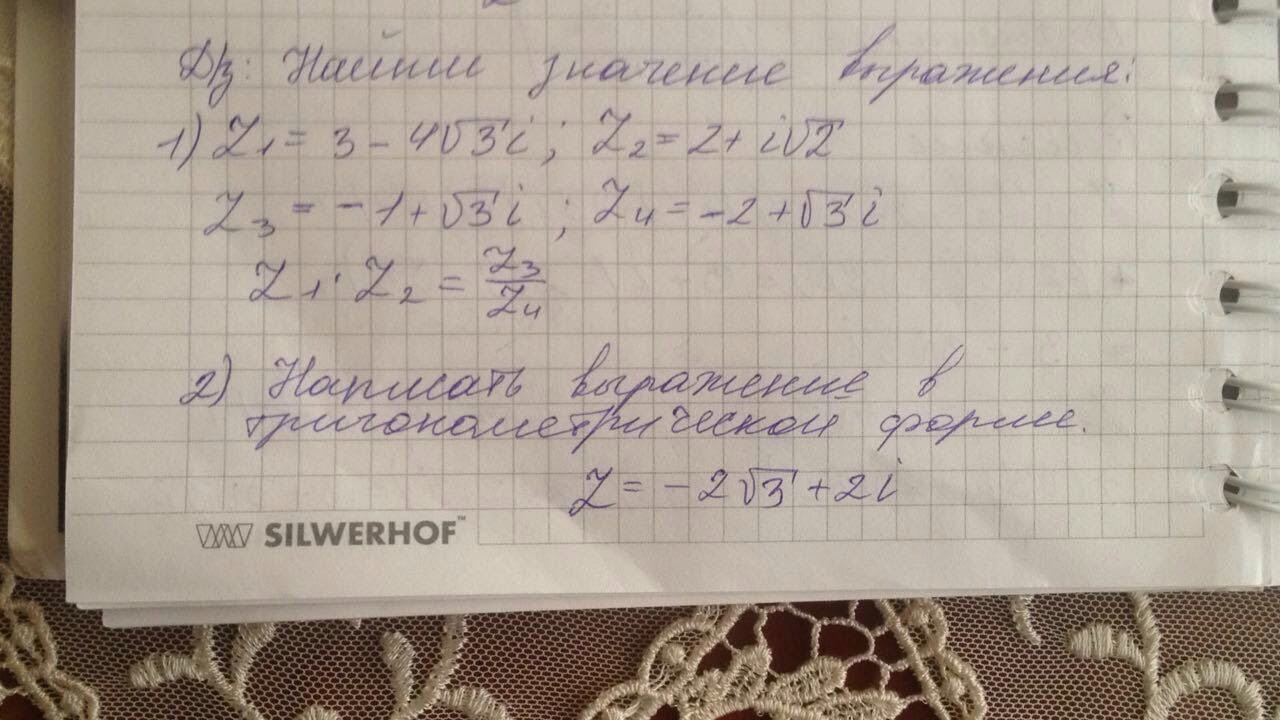 Д/з: Найти значение выражения:
1) Z₁ = 3 - 4√3 i ; Z₂ = 2 + i√2
Z₃ = -1 + √3 i ; Z₄ = -2 + √3 i
Z₁ · Z₂ = Z₃/Z₄
2) Написать выражение в
тригонометрической форме.
Z = -2√3 + 2i
SILWERHOF™